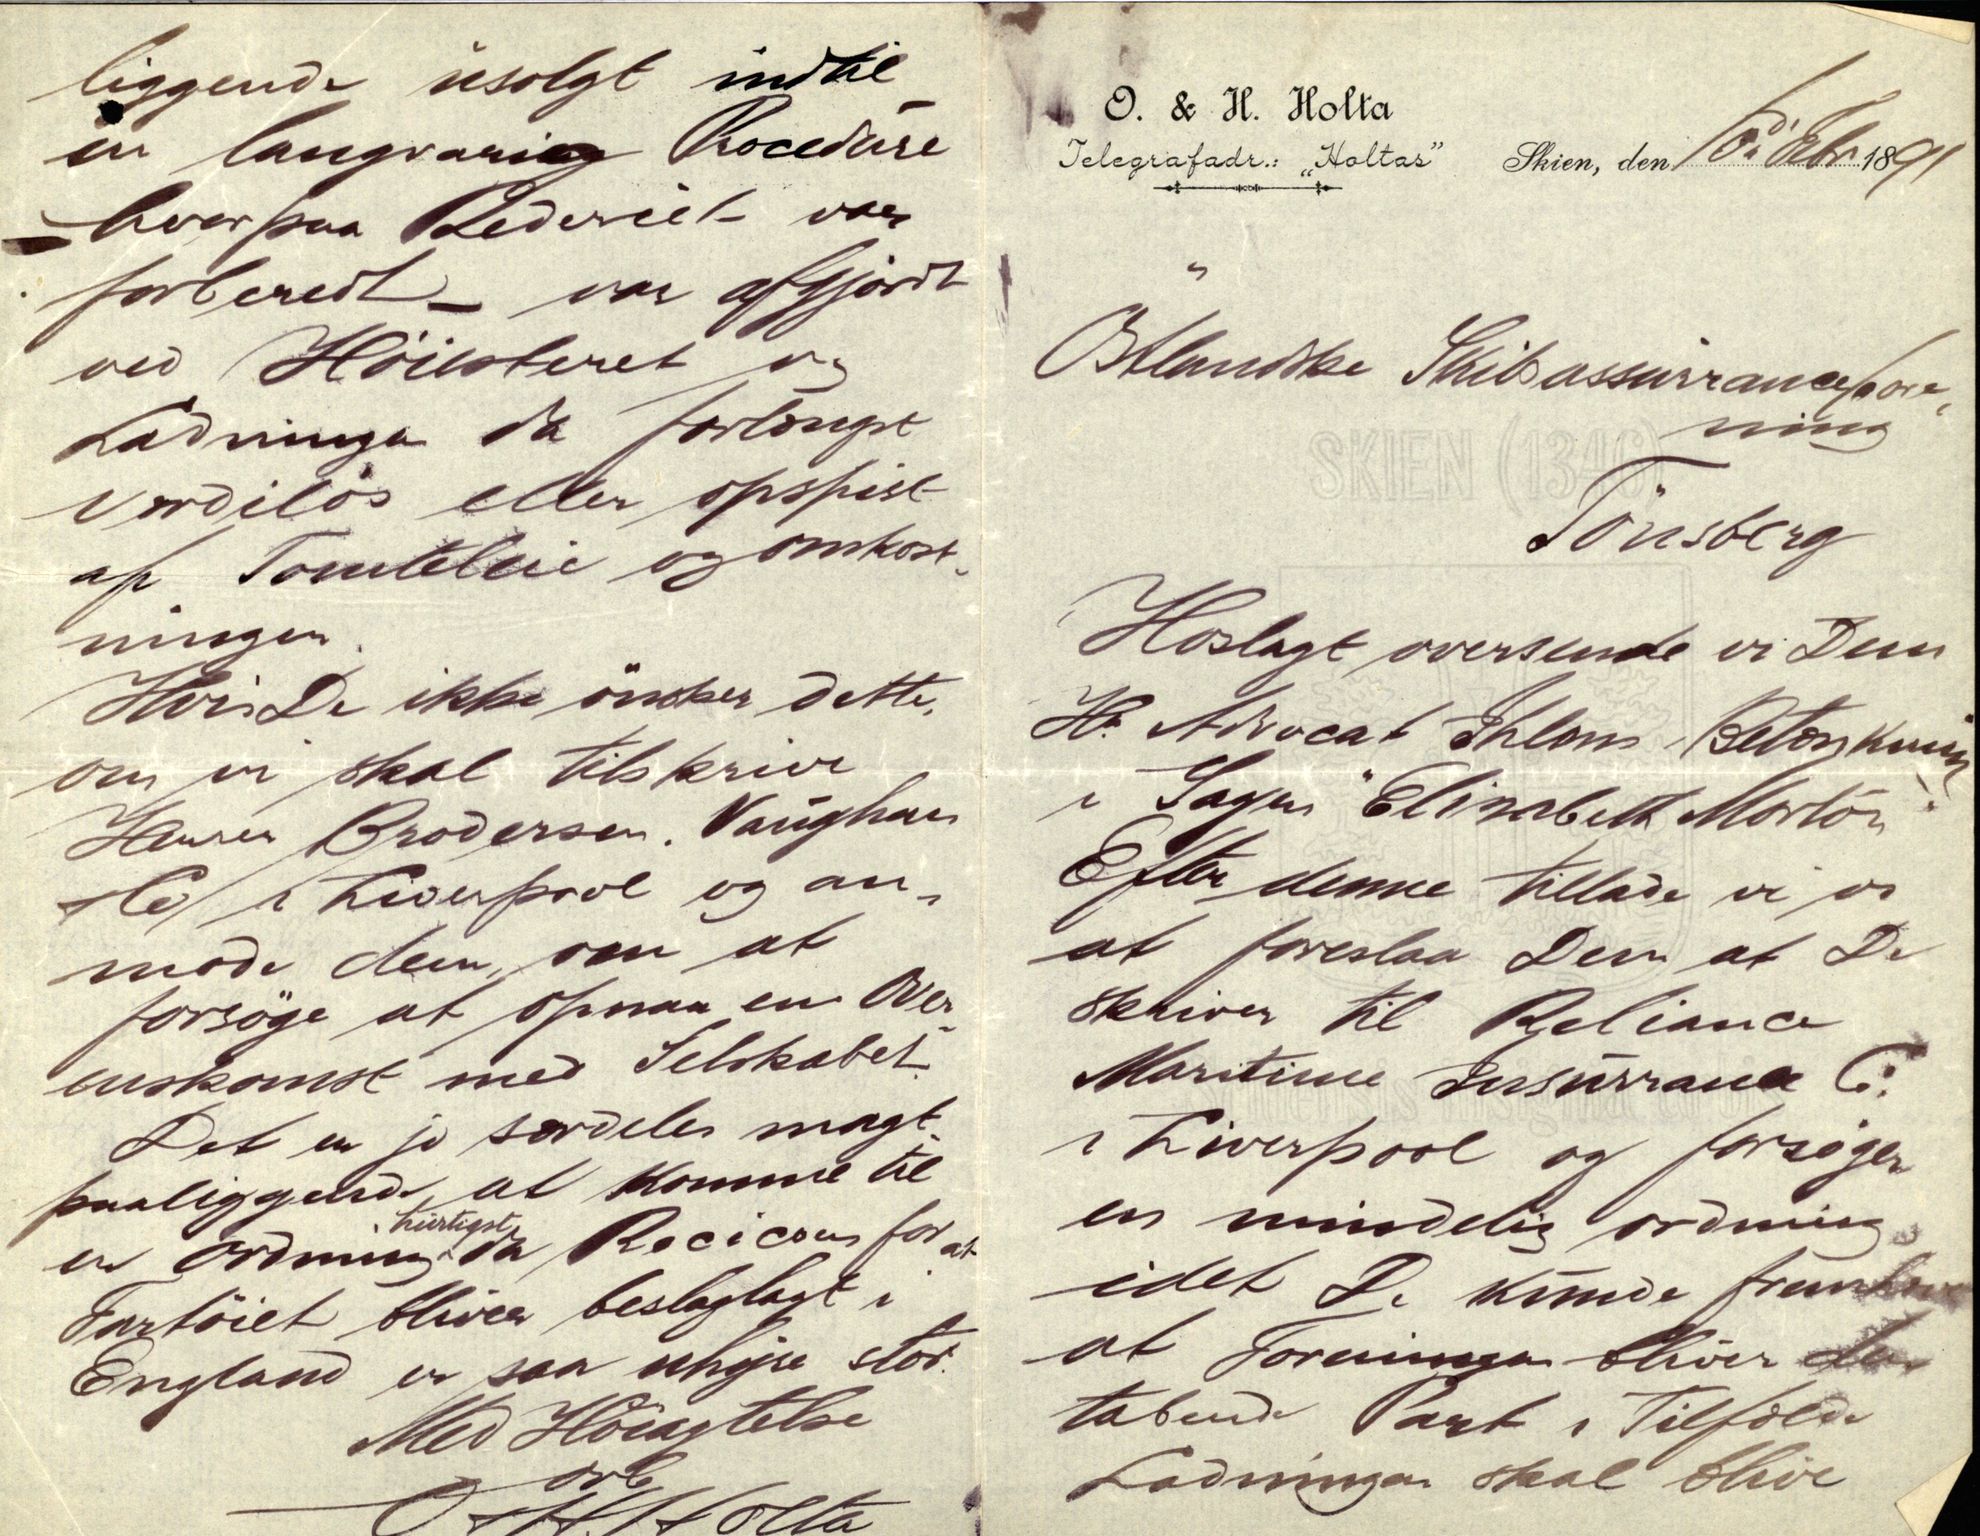 O. & H. Holta
Telegrafadr.: „Holtas"
Skien, den 10 Febr 1891
Östlandske Skibsassurrancefore„
ning
Tönsberg
SKIEN (1346)
Hoslagt oversende vi Dem
Hr. Advocat Ihlens Betænkning
i Sagen "Elizabeth Morton".
Efter denne tillade vi os
at foreslaa Dem at De
skriver til Reliance
Maritime Insurrance Co.
i Liverpool og forsøger
en mindelig ordning
idet De kunde fremhæve
at Foreningen bliver den
tabende Part i Tilfælde
Ladningen skal blive
liggende usolgt indtil
en langvarig Procedure
– hvorpaa Rederiet var
forberedt – var afgjordt
ved Höiesteret og
Ladningen da forlængst
værdilös eller opspist
af Tomteleie og omkost„
ninger.
Hvis De ikke önsker dette,
om vi skal tilskrive
Herrer Brodersen, Vaughan
& Co i Liverpool og an„
mode dem om at
forsöge at opnaa en Over„
enskomst med Selskabet.
Det er jo særdeles magt„
paaliggende, at komme til
en Ordning hurtigst, da Recicoen for at
Fartöiet bliver beslaglagt i
England er saa uhyre stor.
Med Höiagtelse
O & H Holta